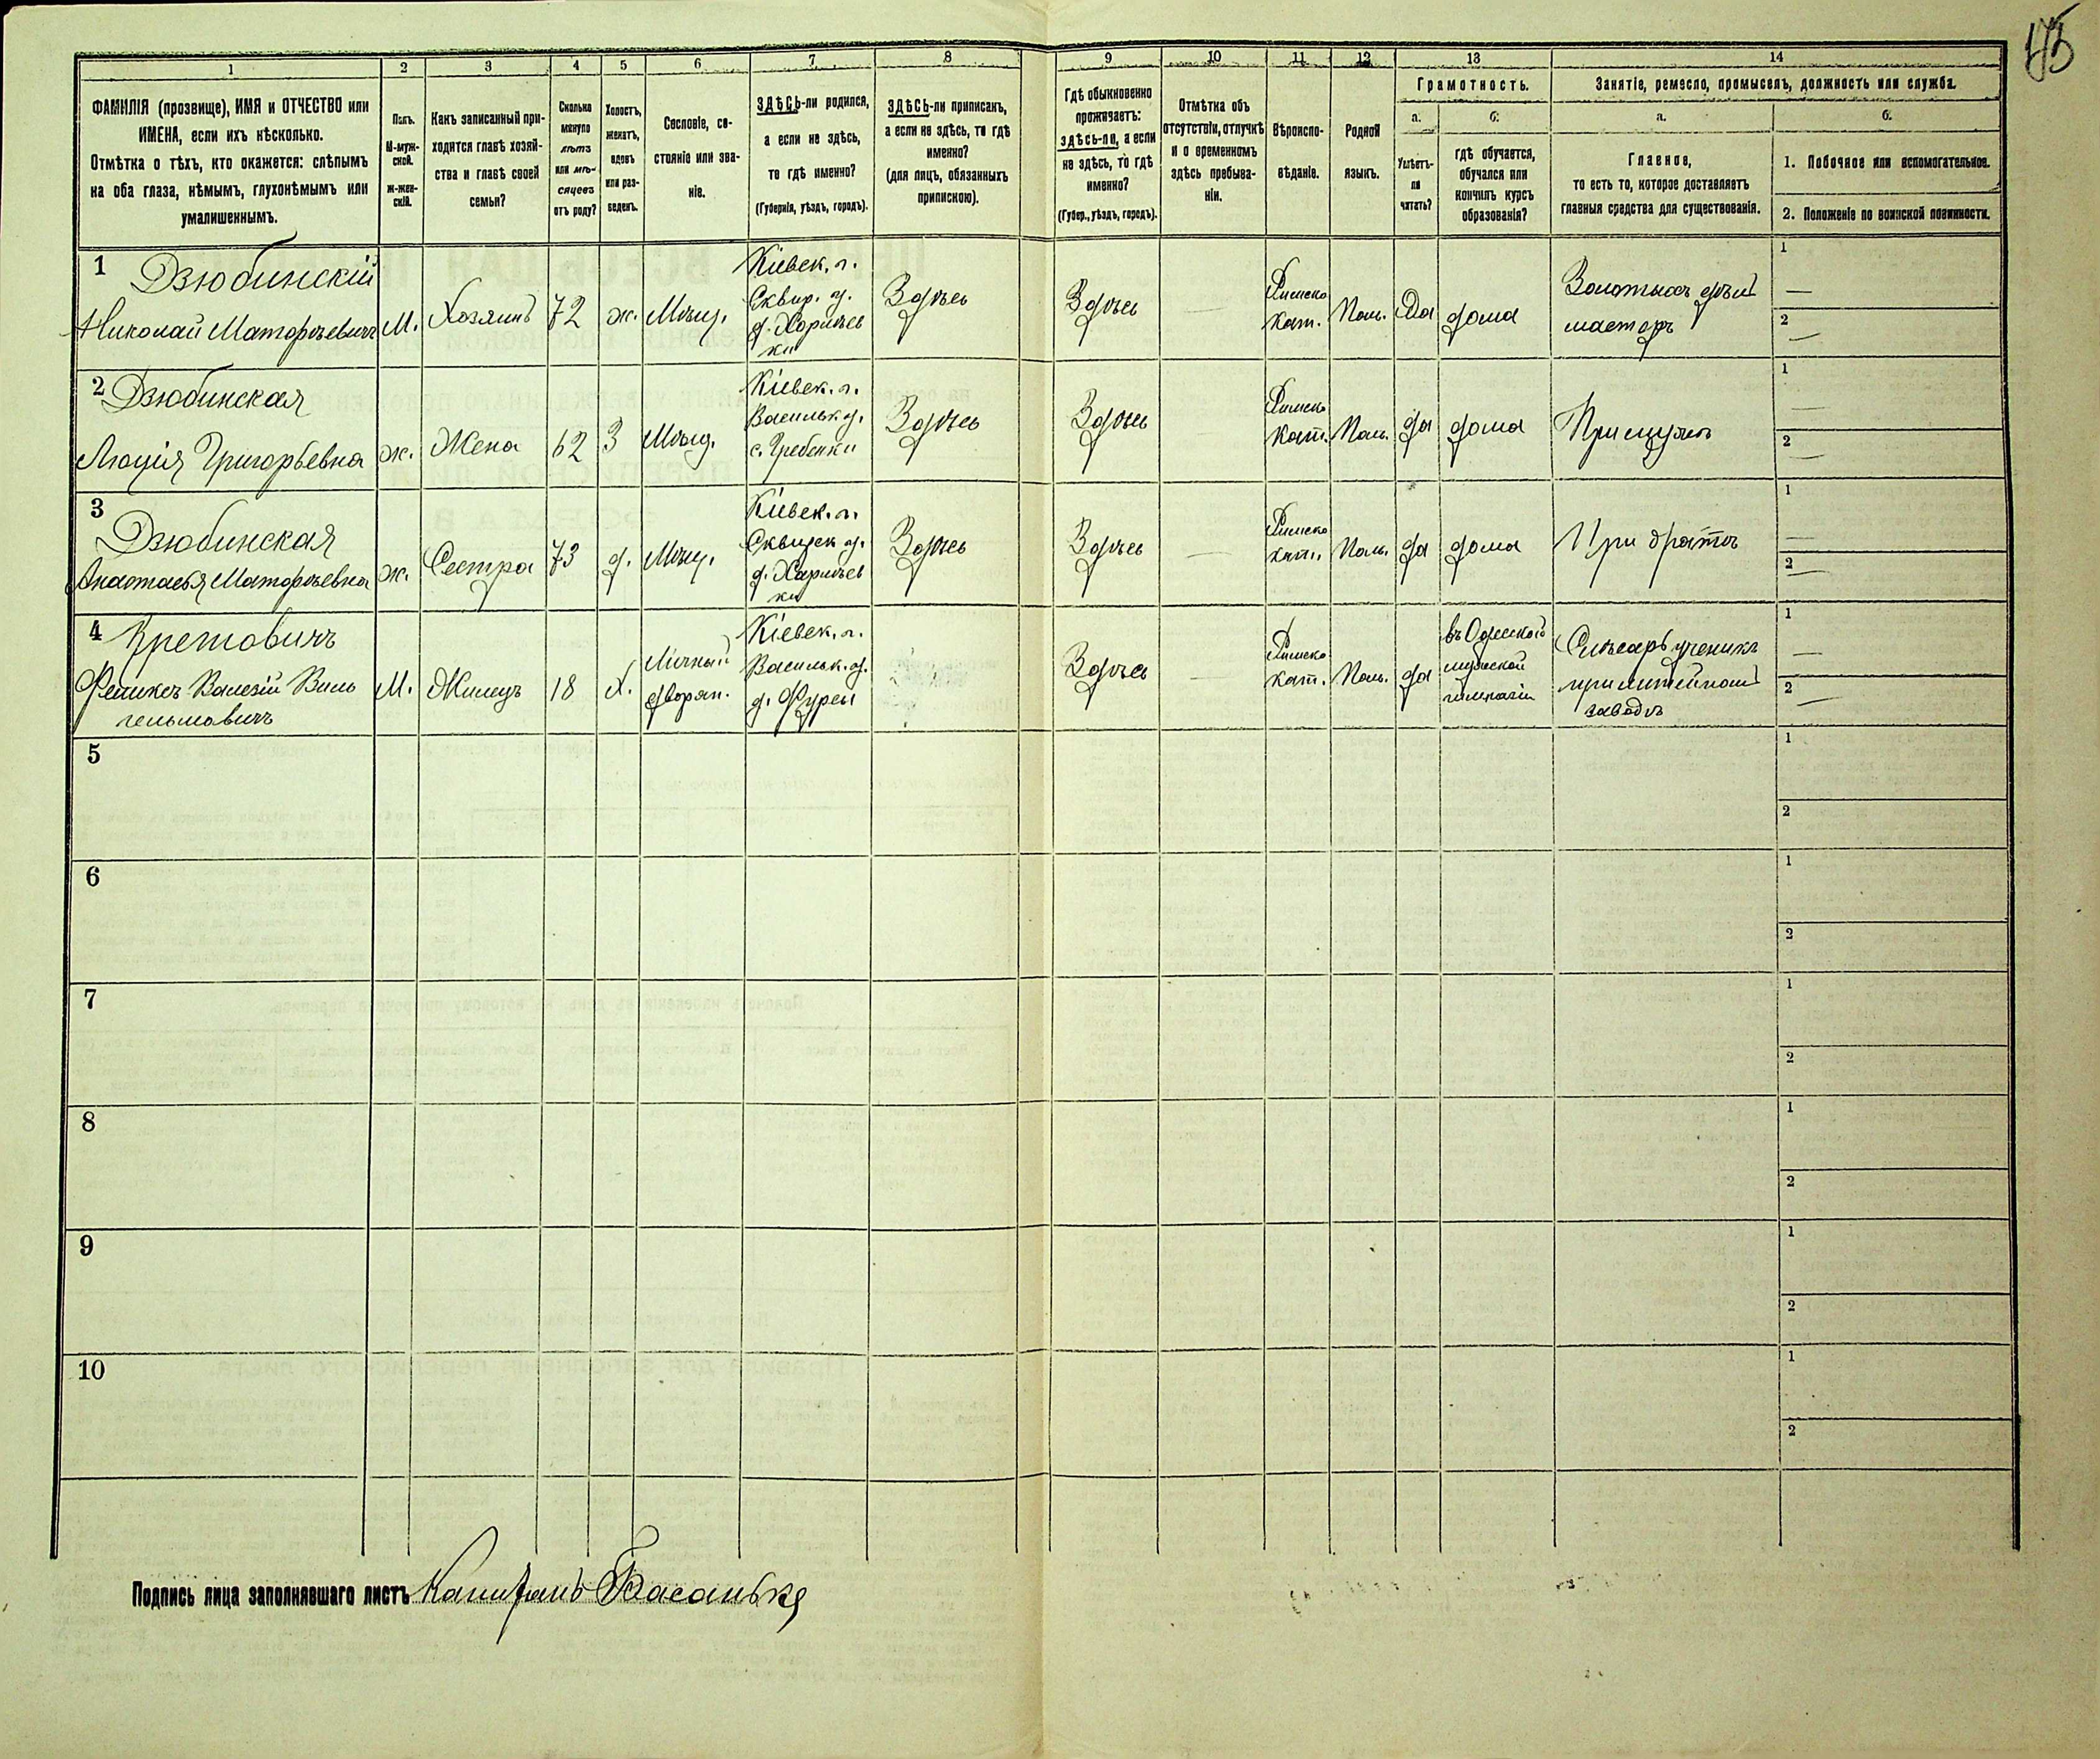 175
1 2 3 4 5 6 7 8 9 10 11 12 13 14
ФАМИЛІЯ (прозвище), ИМЯ и ОТЧЕСТВО или
ИМЕНА, если ихъ нѣсколько.
Отмѣтка о тѣхъ, кто окажется: слѣпымъ
на оба глаза, нѣмымъ, глухонѣмымъ или
умалишеннымъ.
Полъ.
М-муж-
ской.
ж-жен-
скій.
Какъ записанный при-
ходится главѣ хозяй-
ства и главѣ своей
семьи?
Сколько
минуло
лѣтъ
или мѣ-
сяцевъ
отъ роду?
Холостъ,
женатъ,
вдовъ
или раз-
веденъ.
Сословіе, со-
стояніе или зва-
ніе.
ЗДѢСЬ-ли родился,
а если не здѣсь,
то гдѣ именно?
(Губернія, уѣздъ, городъ).
ЗДѢСЬ-ли приписанъ,
а если не здѣсь, то гдѣ
именно?
(для лицъ, обязанныхъ
припискою).
Гдѣ обыкновенно
проживаетъ:
здѣсь-ли, а если
не здѣсь, то гдѣ
именно?
(Губер., уѣздъ, городъ).
Отмѣтка объ
отсутствіи, отлучкѣ
и о временномъ
здѣсь пребыва-
ніи.
Вѣроиспо-
вѣданіе.
Родной
языкъ.
Грамотность.
а.
Умѣетъ-
ли
читать?
б.
гдѣ обучается,
обучался или
кончилъ курсъ
образованія?
Занятіе, ремесло, промыселъ, должность или служба.
а.
Главное,
то есть то, которое доставляетъ
главныя средства для существованія.
б.
1. Побочное или вспомогательное.
2. Положеніе по воинской повинности.
1 Дзюбинскій
Николай Матфѣевичъ
М.
Хозяинъ
72
ж.
Мѣщ.
Кіевск. г.
Сквир. у.
д. Харлѣев
ки
Здѣсь
Здѣсь
—
Римско
кат.
Поль.
Да
дома
Золотыхъ дѣлъ
мастеръ
1 —
2 —
2 Дзюбинская
Люція Григорьевна
ж.
Жена
62
З
Мѣщ.
Кіевск. г.
Васильк. у.
с. Гребенки
Здѣсь
Здѣсь
—
Римско
кат.
Поль.
да
дома
При мужѣ
1 —
2 —
3 Дзюбинская
Анастасья Матфѣевна
ж.
Сестра
73
д.
Мѣщ.
Кіевск. г.
Сквирск у.
д. Харлѣев
ки
Здѣсь
Здѣсь
—
Римско
кат.
Поль.
да
дома
При братѣ
1 —
2 —
4 Кретовичъ
Феликсъ Валезій Виль
гельмовичъ
М.
Жилецъ
18
Х.
Личный
дворян.
Кіевск. г.
Васильк. у.
д. Фурсы
Здѣсь
Римско
кат.
Поль.
да
въ Одесской
мужской
гимназіи
Слѣсарь ученикъ
при литейномъ
заводѣ
1 —
2 —
5
1
2
6
1
2
7
1
2
8
1
2
9
1
2
10
1
2
Подпись лица заполнявшаго листъ Капитанъ